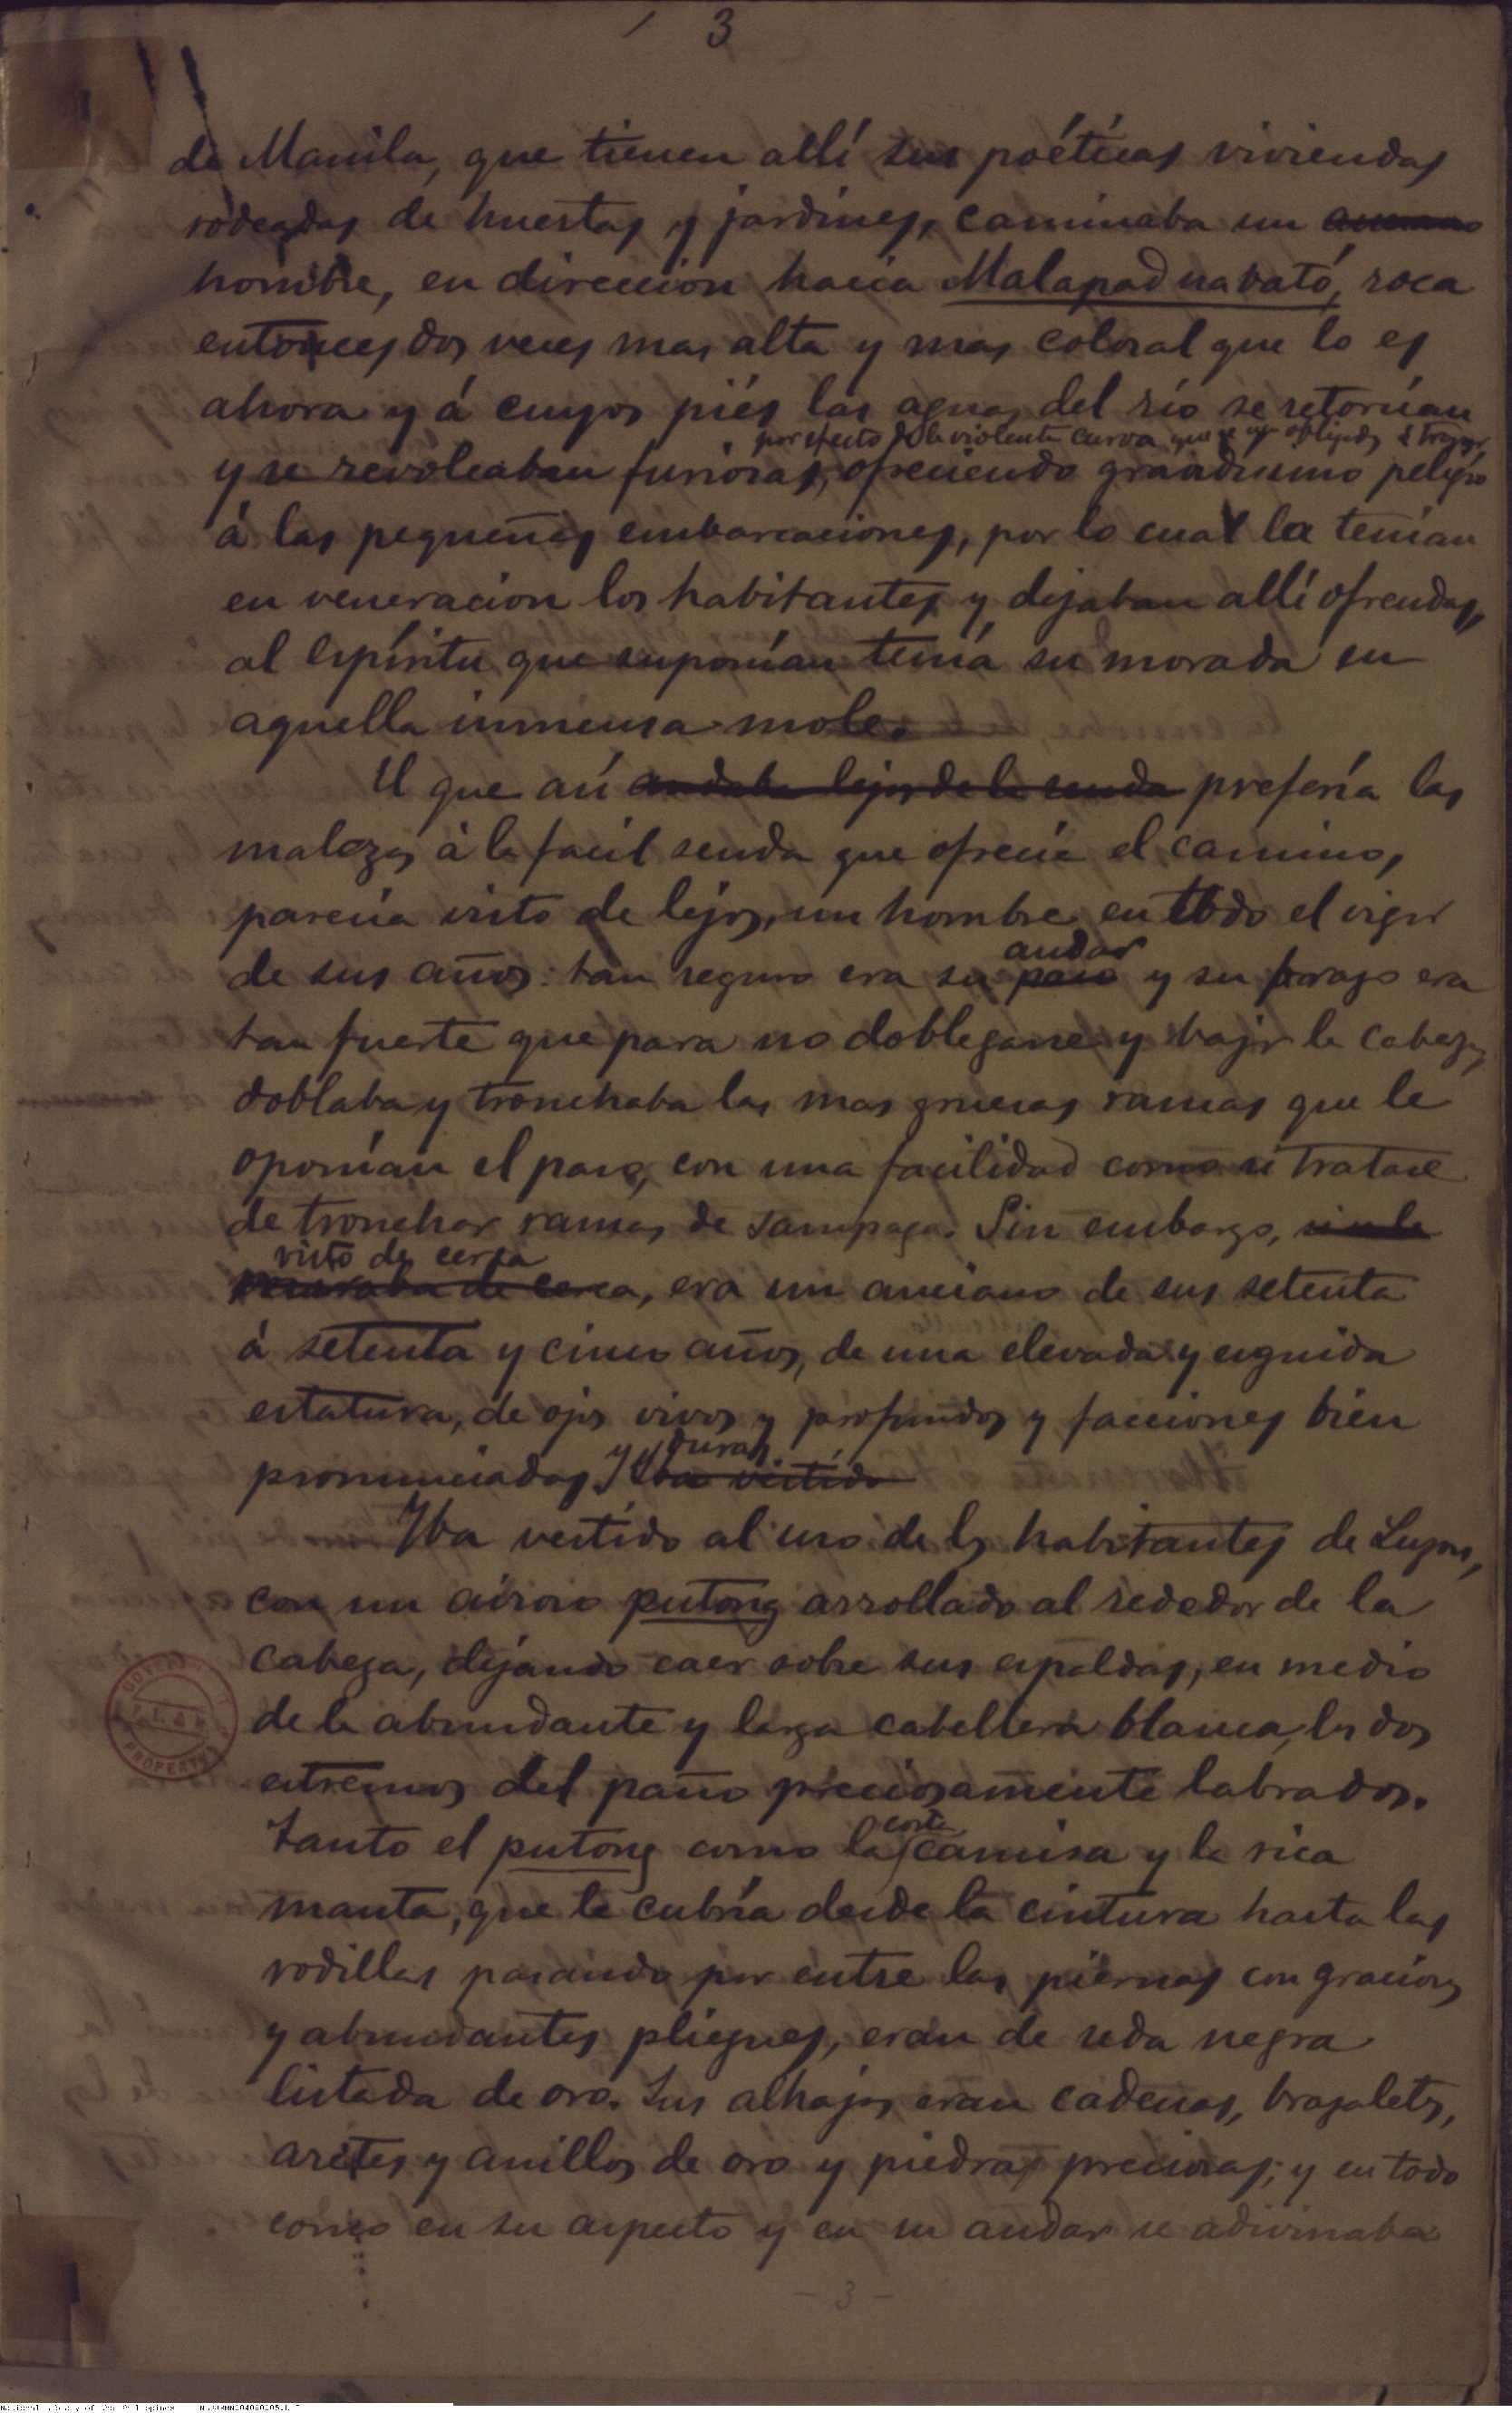 3
de Manila, que tienen allí sus poéticas viviendas
rodeadas de huertas y jardines, caminaba un anciano
hombre, en direccion hacia Malapad na bató, roca
entonces dos veces mas alta y mas colosal que lo es
ahora y á cuyos piés las aguas del rio se retorcían
por efecto de la violenta curva que se ven obligadas á trazar
y se revolcaban furiosas, ofreciendo grandísimo peligro
á las pequeñas embarcaciones, por lo cual la tenían
en veneracion los habitantes y dejaban allí ofrendas,
al espíritu que suponían tenía su morada en
aquella inmensa mole.
El que así andaba lejos de la senda prefería las
malezas á la facil senda que ofrecía el camino,
parecía visto de lejos, un hombre en todo el vigor
andar
de sus años: tan seguro era su paso y su brazo era
tan fuerte que para no doblegarse y bajar la cabeza,
doblaba y tronchaba las mas gruesas ramas que le
oponían el paso, con una facilidad como si tratase
de tronchar ramas de sampaga. Sin embargo,
visto de cerca
de cerca, era un anciano de sus setenta
á setenta y cinco años, de una elevada y erguida
estatura, de ojos vivos y profundos y facciones bien
y duras
pronunciadas. Iba vestido
Iba vestido al uso de los habitantes de Luzon,
con un airoso putong arrollado al rededor de la
cabeza, dejando caer sobre sus espaldas, en medio
de la abundante y larga cabellera blanca, los dos
estremos del paño preciosamente labrados.
corta
Tanto el putong como la camisa y la rica
manta, que le cubría desde la cintura hasta las
rodillas pasando por entre las piernas con graciosos
y abundantes pliegues, eran de seda negra
listada de oro. Sus alhajas eran cadenas, brazaletes,
aretes y anillos de oro y piedras preciosas; y en todo
como en su aspecto y en su andar se adivinaba
- 3 -
GOVERNMENT
PROPERTY
National Library of the Philippines